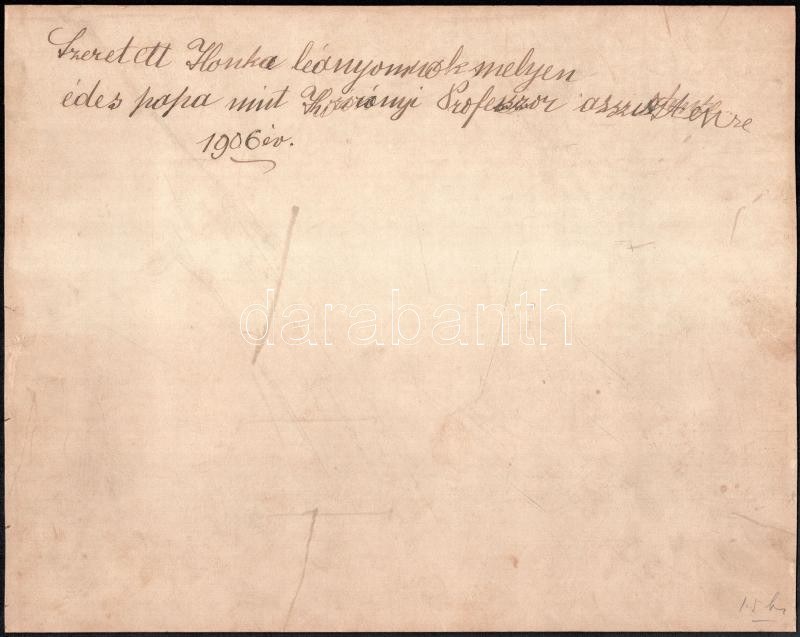 Szeretett Ilonka leányomnak melyen
édes papa mint Korányi Professzor asszisztense
1906 év.
darabanth